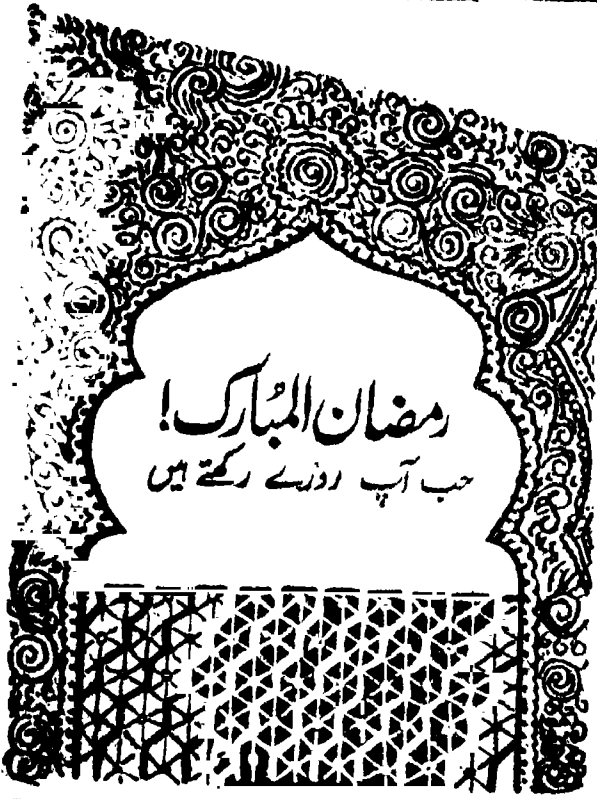 رمضان المبارک!
جب آپ روزے رکھتے ہیں